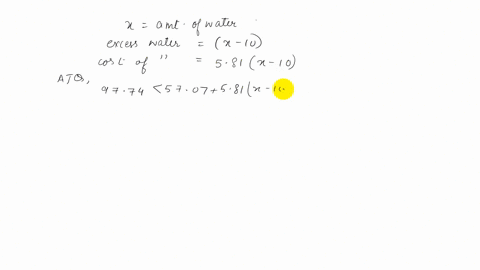 x = amt. of water
excess water = (x-10)
cost of " = 5.81 (x-10)
ATQ,
97.74 < 57.07 + 5.81 (x-10